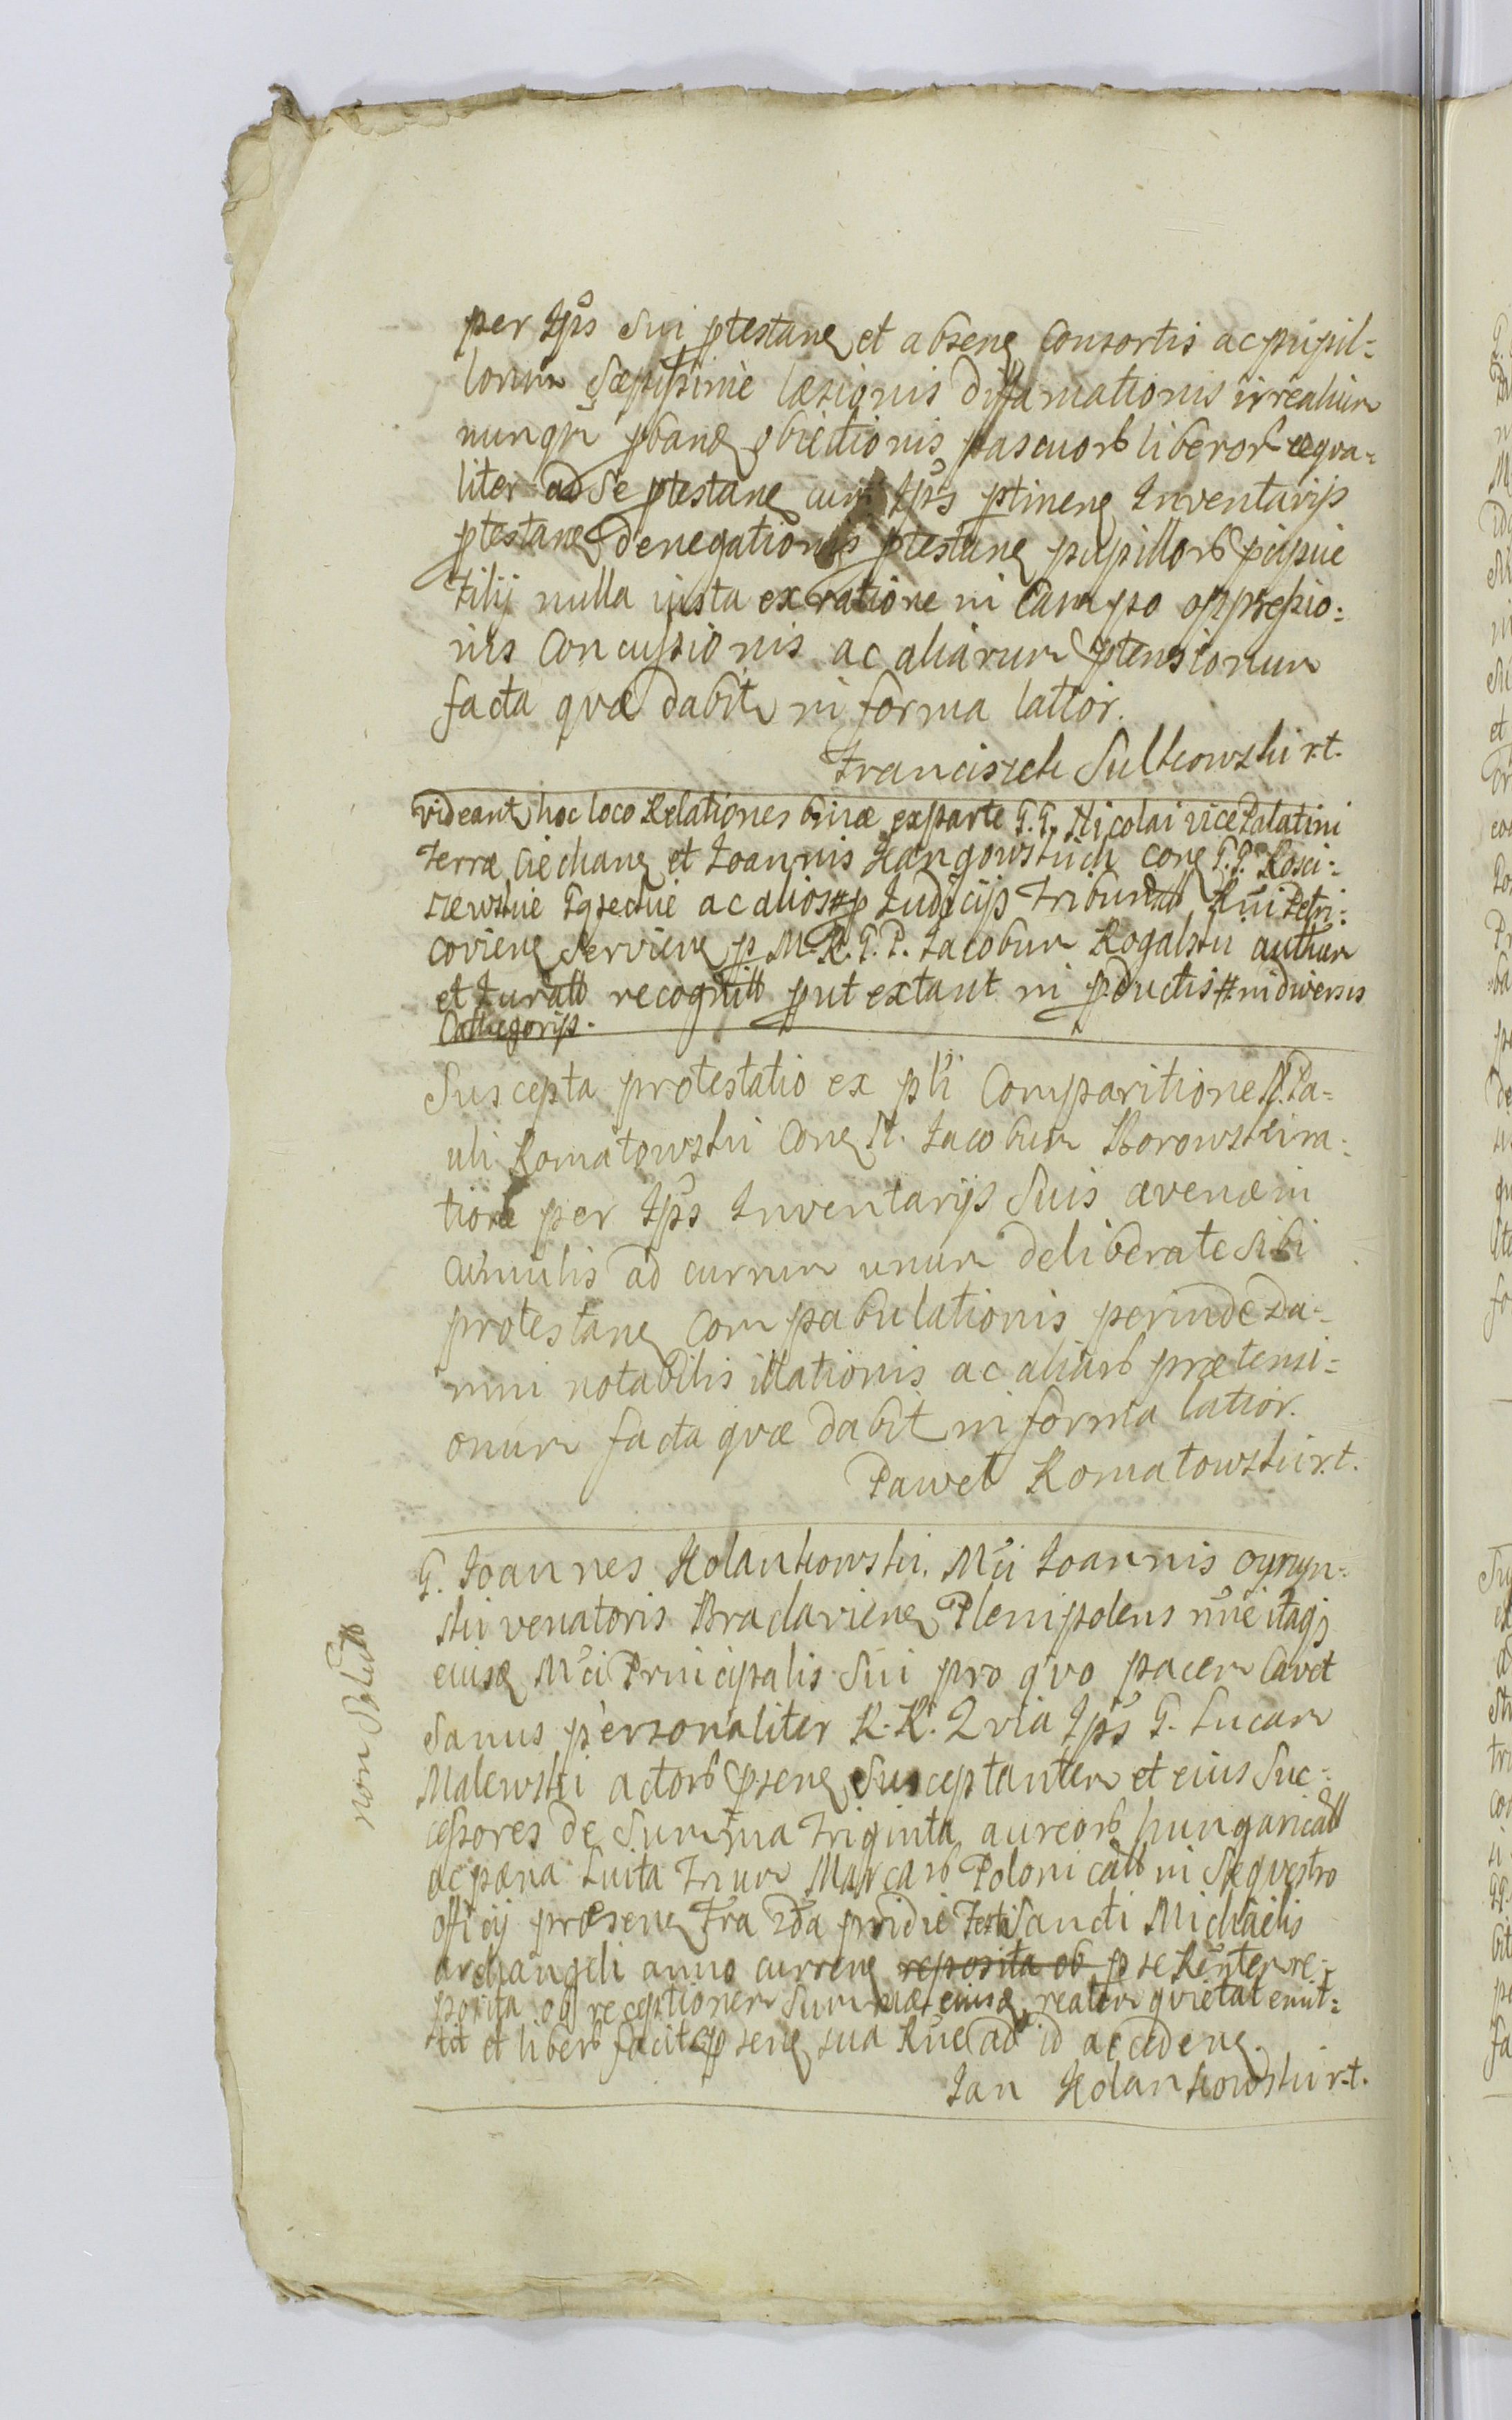 per Ips sui ptestane et absene Consortis ac pupil=
lorum sæpissime læsionis diffamationis irrealium
nunqm pbane obiectionis pascuorb liberorb æqva=
liter ad se ptestane cum Ips ptinene Inventarijs
ptestane denegationis ptestane pupillorb
filij nulla iusta ex ratione in Campo oppressio=
nis Concussionis ac aliarum ptensionum
facta qvæ dabit in forma lattior.
Franciszek Sulkowski r.t.
videant hoc loco Relationes binæ ex parte G.G. Nicolai vice Palatini
Terræ Ciechane et Joannis cone G.G. Kosci=
szewskie ac alios # p Judicijs Tribunall Rni Petri=
coviene Serviene p M. R. G. P. Jacobum Rogalski authen
et Juratt recognitt put extant in pductis # in diversis
Cathegorijs.
Suscepta protestatio ex pli Comparitione N. Pa=
uli Komatowski Cone N. Jacobum Borowski ra=
tione per Ips Inventarijs suis avenæ in
cumulis ad currum unum deliberate sibi
protestane Compabulationis perinde Da=
mni notabilis illationis ac aliarb prætensi=
onum facta qvæ dabit in forma latior.
Paweł Komatowski r.t.
G. Joannes Kolankowski. Mci Joannis
ski venatoris Braclaviene Plenipotens
eiusq Mci Principalis sui pro qvo pacem Cavet
sanus personaliter R. R. Qvia Ips G. Lucam
Malewski actorb psene susceptantem et eius Suc=
cessores de Summa Triginta aureorb hungaricall
ac pæna Luita Trium Marcarb Polonicall in Seqvestro
officij præsene Fra 2da pridie Festi Sancti Michaelis
archangeli anno currene reposita ob p se re=
posita ob receptionem Summæ eiusq realem qvietat emit=
tit et liberb facit psene sua Rne ad id accedene.
Jan Kolankowski r.t.
non